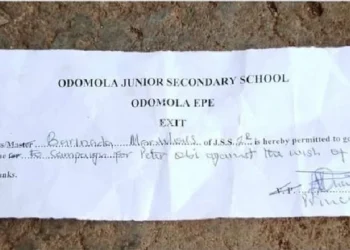 ODOMOLA JUNIOR SECONDARY SCHOOL
ODOMOLA EPE
EXIT
Master Marshals of J.S.S. 2B is hereby permitted to g
to campaign for Peter Obi against the wish of
anks.